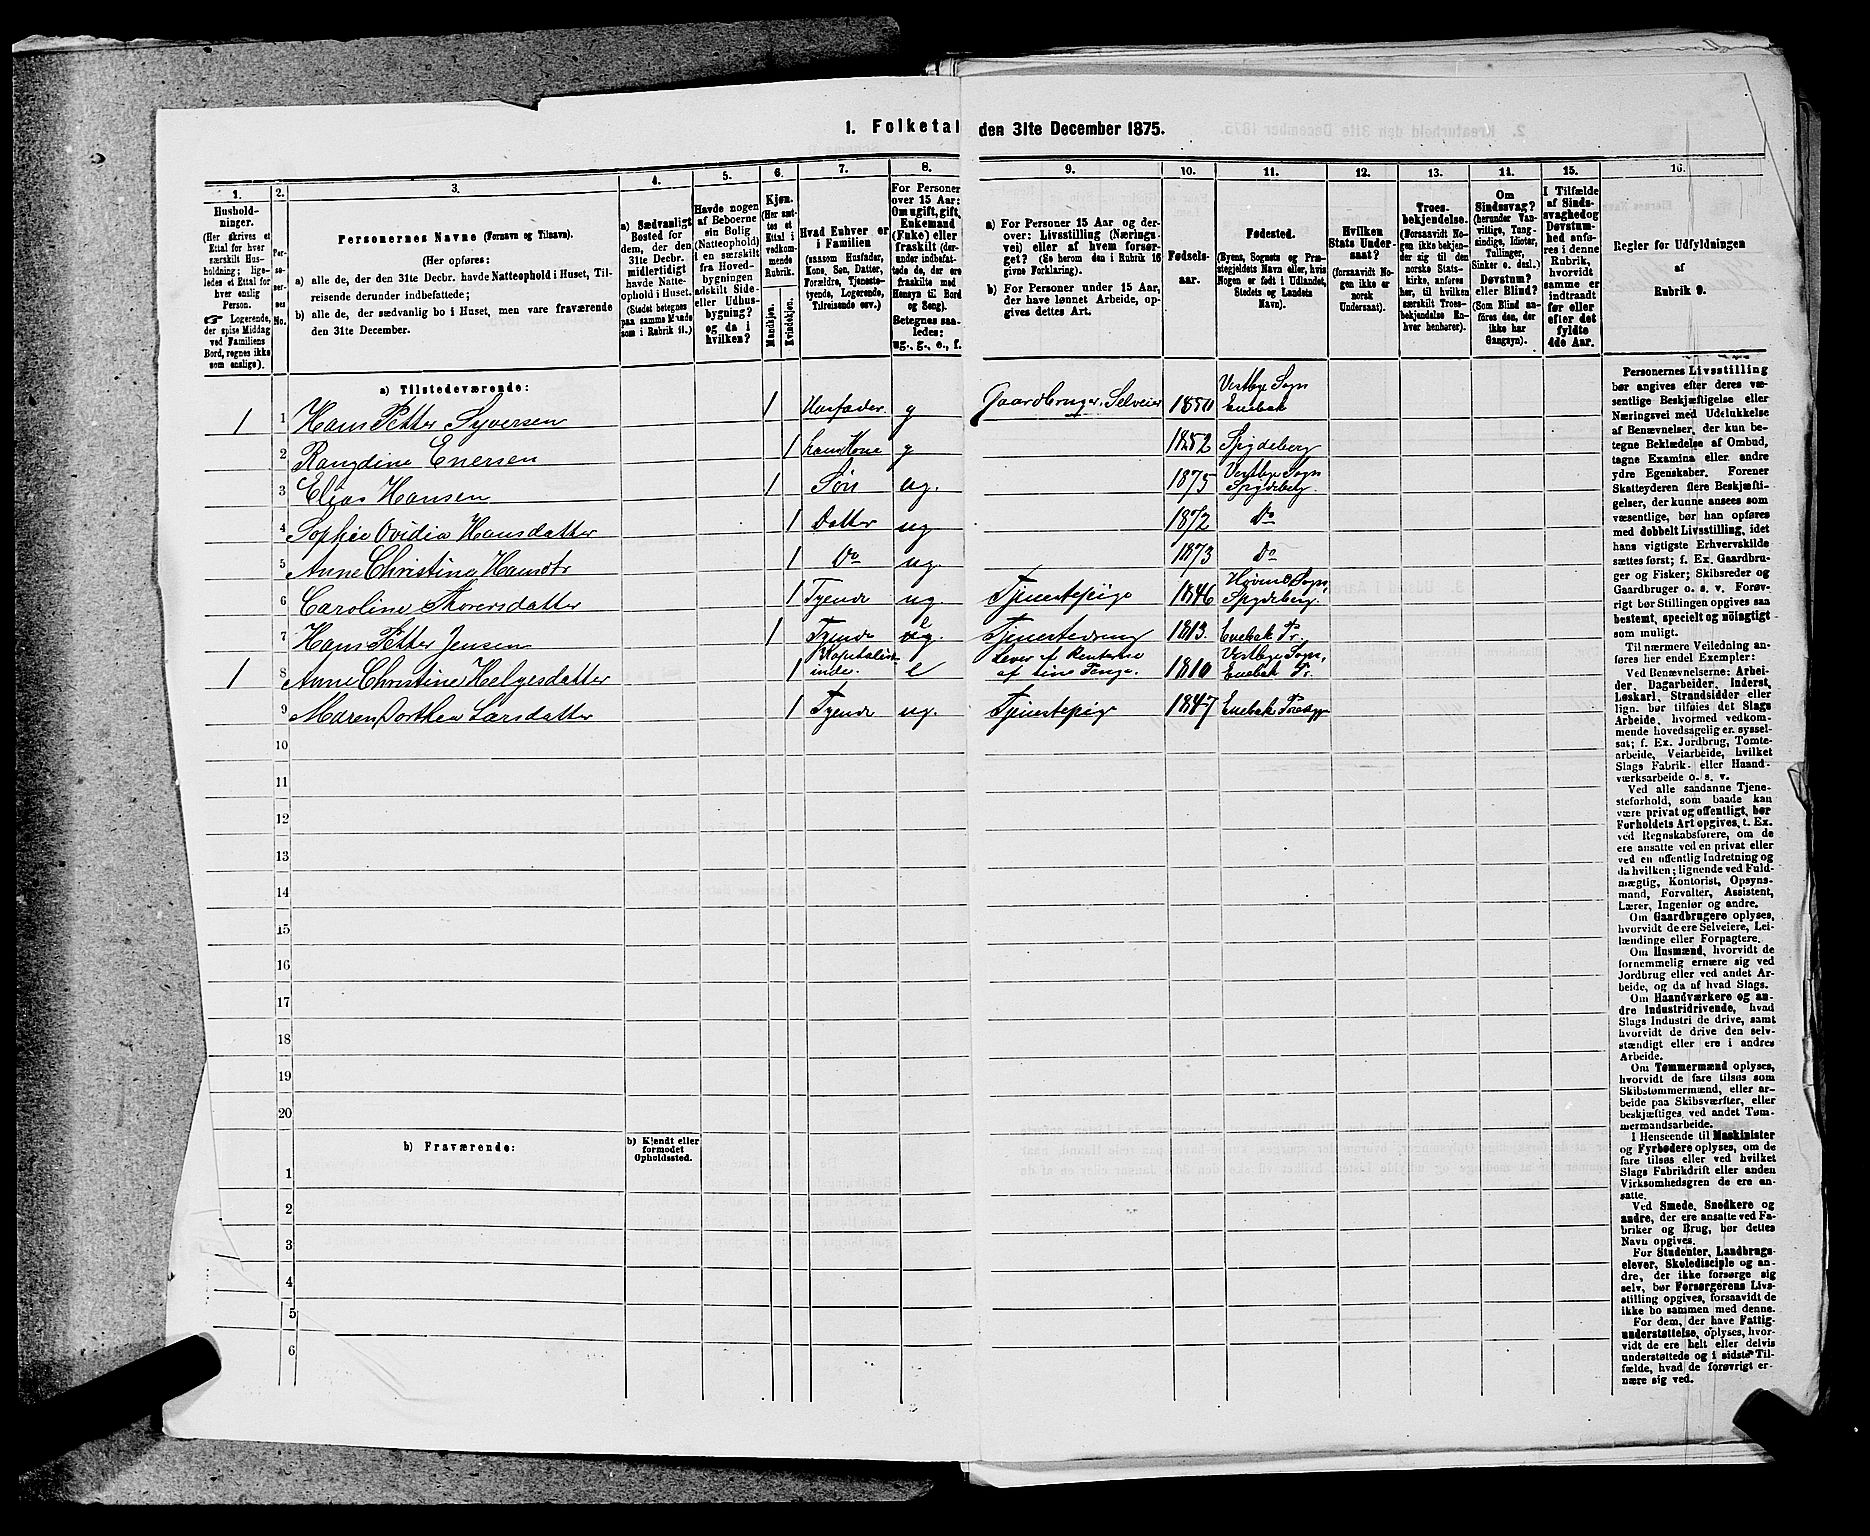 1. Folketal den 31te December 1875.
1.
Hushold-
ninger.
(Her skrives et
Ettal for hver
særskilt Hus-
holdning; lige-
ledes et Ettal for
hver enslig
Person.
☞ Logerende,
der spise Middag
ved Familiens
Bord, regnes ikke
som enslige).
2.
Per-
so-
ner-
nes
No.
3.
Personernes Navne (Fornavn og Tilnavn).
(Her opføres:
a) alle de, der den 31te Decbr. havde Natteophold i Huset, Til-
reisende derunder indbefattede;
b) alle de, der sædvanlig bo i Huset, men vare fraværende
den 31te December.
4.
a) Sædvanligt
Bosted for
dem, der den
31te Decbr.
midlertidigt
havde Natte-
ophold i Huset.
(Stedet betegnes
paa samme Maade
som i Rubrik 11.)
5.
Havde nogen
af Beboerne
sin Bolig
(Natteophold)
i en særskilt
fra Hoved-
bygningen
adskilt Side-
eller Udhus-
bygning?
og da i
hvilken?
6.
Kjøn.
(Her sæt-
tes et
Ettal i
vedkom-
mende
Rubrik.
Mandkjøn.
Kvindekjøn.
7.
Hvad Enhver er
i Familien
(saasom Husfader,
Kone, Søn, Datter,
Forældre, Tjeneste-
tyende, Logerende,
Tilreisende osv.)
8.
For Personer
over 15 Aar:
Om ugift, gift,
Enkemand
(Enke) eller
fraskilt (der-
under indbefat-
tede de, der ere
fraskilte med
Hensyn til Bord
og Seng).
Betegnes saa-
ledes:
ug., g., e., f.
9.
a) For Personer 15 Aar og der-
over: Livsstilling (Nærings-
vei) eller af hvem forsør-
get? (Se herom den i Rubrik 16
givne Forklaring).
b) For Personer under 15 Aar,
der have lønnet Arbeide, op-
gives dettes Art.
10.
Fødsels-
aar.
11.
Fødested.
(Byens, Sognets og Præ-
stegjeldets Navn eller, hvis
Nogen er født i Udlandet,
Stedets og Landets
Navn).
12.
Hvilken
Stats Under-
saat?
(forsaavidt No-
gen ikke er
norsk
Undersaat).
13.
Troes-
bekjendelse.
(Forsaavidt No-
gen ikke bekjen-
der sig til den
norske Stats-
kirke, anføres
her, til hvilken
særskilt Troes-
bekjendelse En-
hver henhører).
14.
Om
Sindssvag?
(herunder Van-
vittige, Tung-
sindige, Idioter,
Tullinger,
Sinker o. desl.).
Døvstum?
eller Blind?
(Som Blind an-
føres den, der
ikke har
Gangsyn).
15.
I Tilfælde
af Sinds-
svaghed og
Døvstum-
hed anfø-
res i denne
Rubrik,
hvorvidt
samme er
indtraadt
før eller
efter det
fyldte
4de Aar.
16.
Regler for Udfyldningen
af
Rubrik 9.
a) Tilstedeværende:
1 1 Hans Petter Syversen 1 Husfader g Gaardbruger, Selveier 1850 Vestby Sogn Enebak
2 Rangdine Enersen 1 hans Kone g 1852 Spydeberg
3 Elias Hansen 1 Søn ug. 1875 Vestby Sogn Spydeberg.
4 Sophie Ovidia Hansdatter 1 Datter ug 1872 Do
5 Anne Christine Hansdtr 1 Do ug. 1873 Do
6 Caroline Thorersdatter 1 Tyende ug. Tjenestepige 1846 Høvin Sogn, Spydeberg.
7 Hans Petter Jensen 1 Tyende e Tjenestedreng 1813. Enebak Pr.
1 8 Anne Christine Helgesdatter 1 Kapitalist- inde. e Lever af Renterne af sine Penge. 1810 Vestby Sogn, Enebak Pr.
9 Maren Dorthea Larsdatter 1 Tyende ug. Tjenestepige 1847 Enebak Præstgj
10
11
12
13
14
15
16
17
18
19
20
b) Fraværende:
b) Kjendt eller
formodet
Opholdssted.
1
2
3
4
5
6
Personernes Livsstilling
bør angives efter deres væ-
sentlige Beskjæftigelse eller
Næringsvei med Udelukkelse
af Benævnelser, der kun be-
tegne Beklædelse af Ombud,
tagne Examina eller andre
ydre Egenskaber. Forener
Skatteyderen flere Beskjæfti-
gelser, der kunne ansees som
væsentlige, bør han opføres
med dobbelt Livsstilling, idet
hans vigtigste Erhvervskilde
sættes først; f. Ex. Gaardbru-
ger og Fisker; Skibsreder og
Gaardbruger o. s. v. Forøv-
rigt bør Stillingen opgives saa
bestemt, specielt og nöiagtigt
som muligt.
Til nærmere Veiledning an-
føres her endel Exempler:
Ved Benævnelserne: Arbei-
der, Dagarbeider, Inderst,
Løskarl, Strandsidder eller
lign. bør tilføies det Slags
Arbeide, hvormed vedkom-
mende hovedsagelig er syssel-
sat; f. Ex. Jordbrug, Tomte-
arbeide, Veiarbeide, hvilket
Slags Fabrik- eller Haand-
værksarbeide o. s. v.
Ved alle saadanne Tjene-
steforhold, som baade kan
være privat og offentligt, bør
Forholdets Art opgives, t. Ex.
ved Regnskabsførere, om de
ere ansatte ved en privat eller
ved en offentlig Indretning og
da hvilken; lignende ved Fuld-
mægtig, Kontorist, Opsyns-
mand, Forvalter, Assistent,
Lærer, Ingeniør og andre.
Om Gaardbrugere oplyses,
hvorvidt de ere Selveiere, Lei-
lændinge eller Forpagtere.
Om Husmænd, hvorvidt de
fornemmelig ernære sig ved
Jordbrug eller ved andet Ar-
beide, og da af hvad Slags.
Om Haandværkere og an-
dre Industridrivende, hvad
Slags Industri de drive, samt
hvorvidt de drive den selv-
stændigt eller ere i andres
Arbeide.
Om Tømmermænd oplyses,
hvorvidt de fare tilsøs som
Skibstømmermænd, eller ar-
beide paa Skibsværfter, eller
beskjæftiges ved andet Tøm-
mermandsarbeide.
I Henseende til Maskinister
og Fyrbødere oplyses, om de
fare tilsøs eller ved hvilket
Slags Fabrikdrift eller anden
Virksomhedsgren de ere an-
satte.
Ved Smede, Snedkere og
andre, der ere ansatte ved Fa-
briker og Brug, bør dettes
Navn opgives.
For Studenter, Landbrugs-
elever, Skoledisciple og an-
dre, der ikke forsørge sig
selv, bør Forsørgerens Livs-
stilling opgives, forsaavidt de
ikke bo sammen med denne.
For dem, der have Fattig-
understøttelse, oplyses, hvor-
vidt de ere helt eller delvis
understøttede og i sidste Til-
fælde, hvad de forøvrigt er-
nære sig ved.